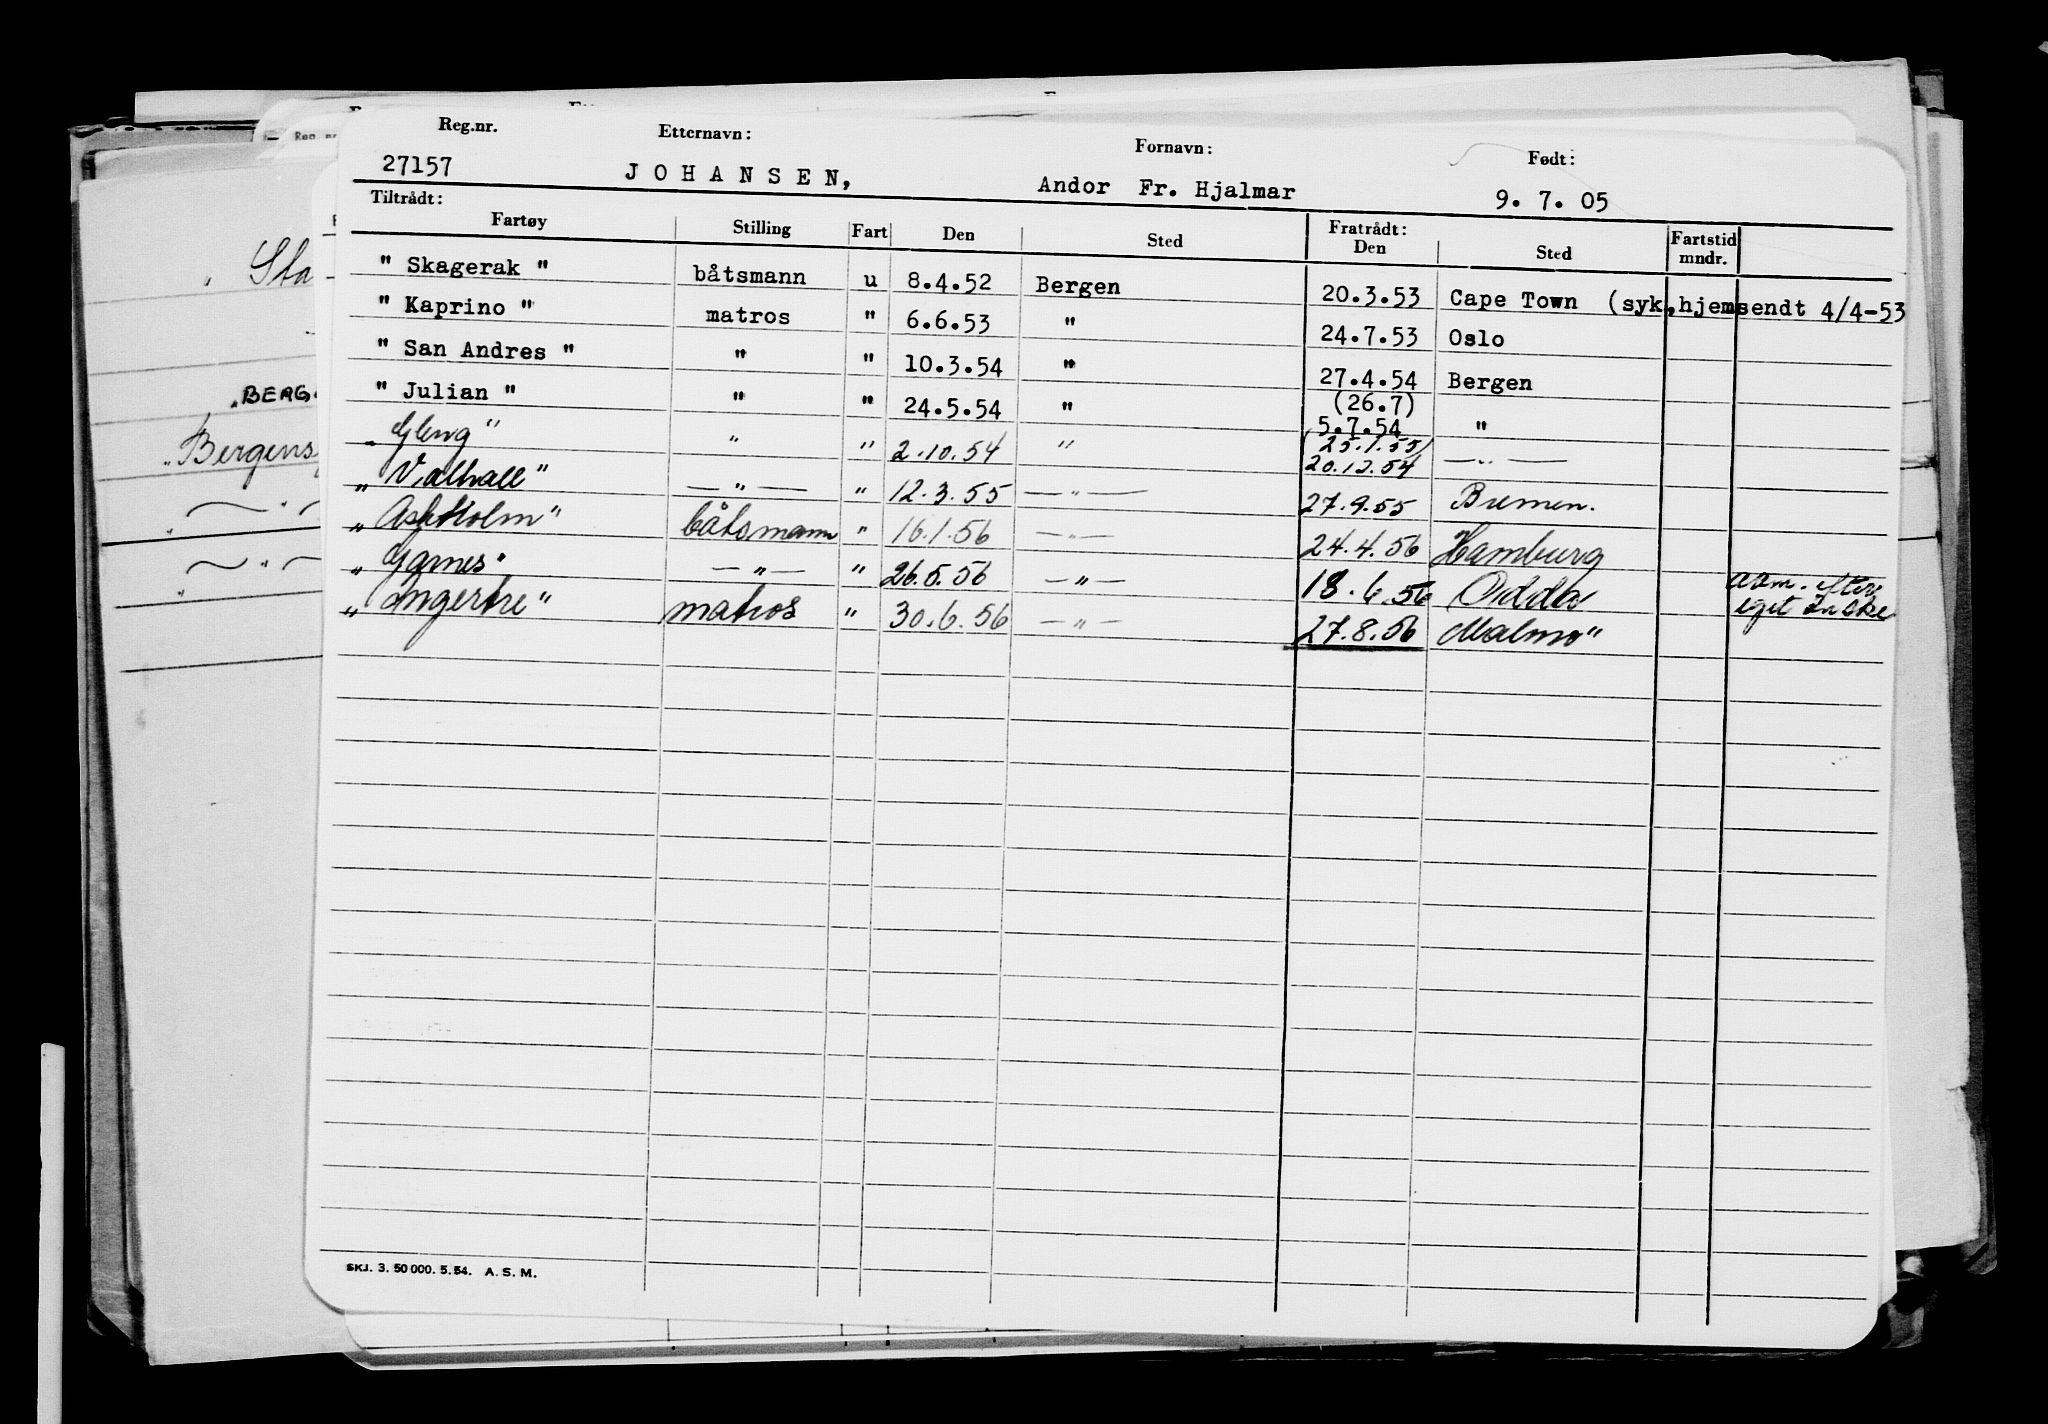 Reg.nr. Etternavn: Fornavn: Født:
27157 JOHANSEN, Andor Fr. Hjalmar 9. 7. 05
Tiltrådt: Fratrådt:
Fartøy Stilling Fart Den Sted Den Sted Fartstid mndr.
" Skagerak " båtsmann u 8.4.52 Bergen 20.3.53 Cape Town (syk,hjemsendt 4/4-53
" Kaprino " matros " 6.6.53 " 24.7.53 Oslo
" San Andres " " " 10.3.54 " 27.4.54 Bergen
(26.7)
" Julian " " " 24.5.54 " 5.7.54 "
(25.1.55)
„ Gleng " " " 2.10.54 " 20.12.54 — " —
„ Valhall " — " — " 12.3.55 — " — 27.9.55 Bremen.
„ Askholm " båtsmann " 16.1.56 — " — 24.4.56 Hamburg
„ Garnes " — " — " 26.5.56 — " — 18.6.56 Odda avm. efter eget ønske
„ Ingertre " matros " 30.6.56 — " — 27.8.56 Malmö
SKJ. 3. 50 000. 5. 54. A. S. M.
Reg. nr
Sta
„BERG
„Bergens